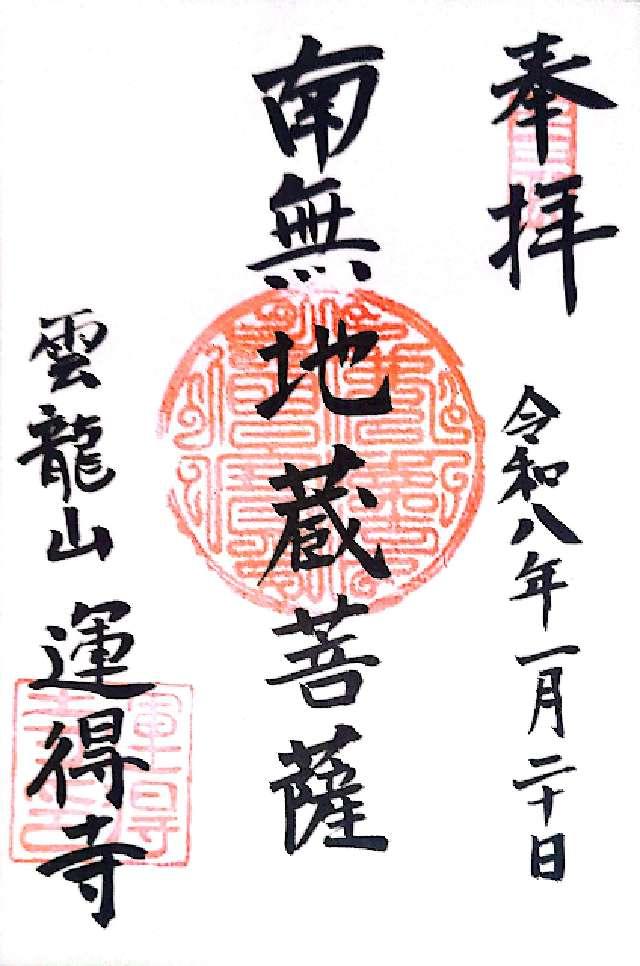 奉拝
令和八年一月二十日
南無地蔵菩薩
雲龍山
運得寺